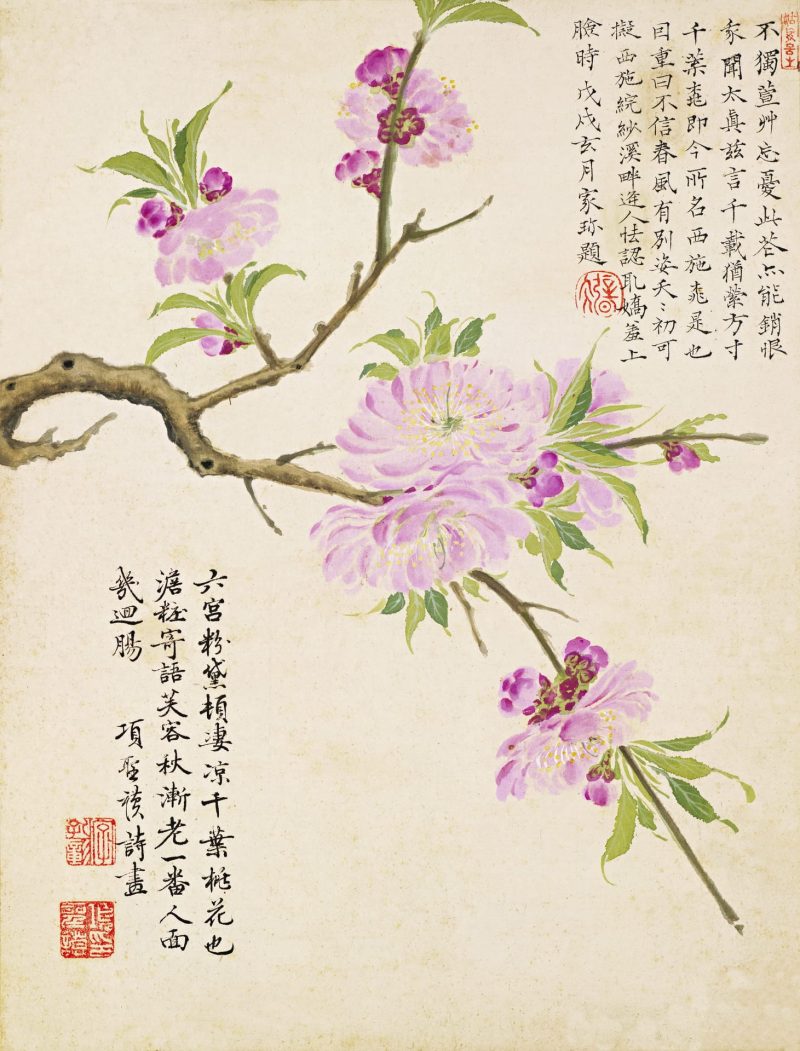 不獨萱艸忘憂此花亦能銷恨
家聞太真兹言千載猶縈方寸
千葉桃即今所名西施桃是也
因重曰不信春風有別姿夭〻初可
擬西施浣紗溪畔逢人怯認取嬌羞上
臉時 戊戌玄月家珎題
六宮粉黛頓凄凉千葉桃花也
澹粧寄語芙容秋漸老一番人面
幾迴腸 項聖謨詩畫